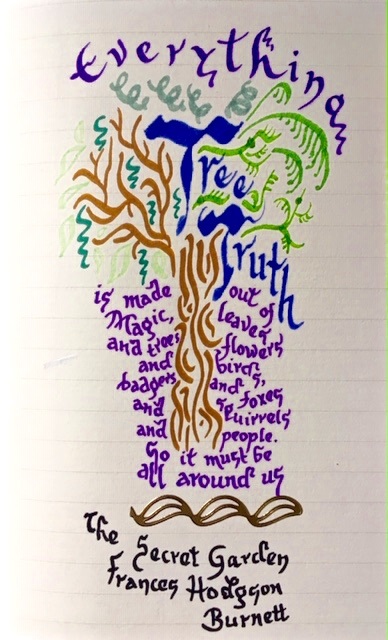 Everything
Tree
Truth
is made out of
Magic, leaves
and trees flowers
and birds,
badgers and foxes
and squirrels
and people.
So it must be
all around us
The
Secret Garden
Frances Hodgson
Burnett